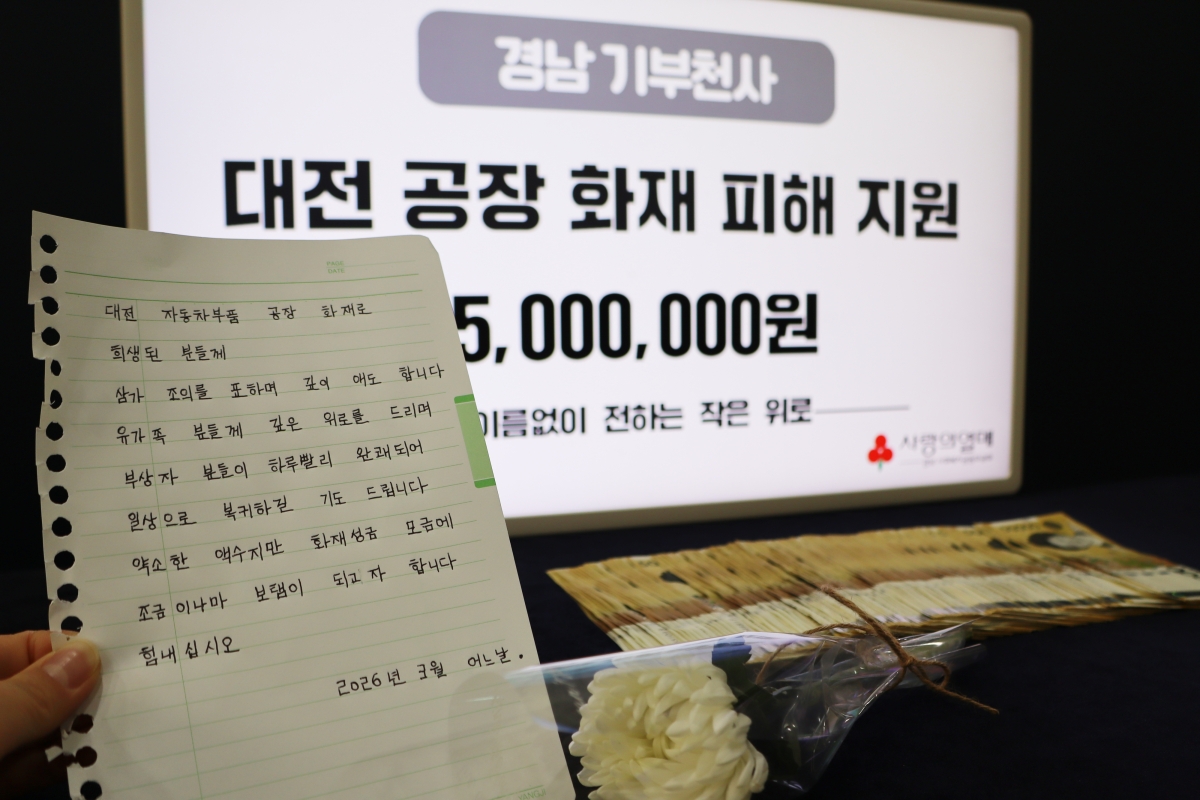 경남 기부천사
대전 공장 화재 피해 지원
5,000,000원
이름없이 전하는 작은 위로
사랑의열매
PAGE
DATE
대전 자동차부품 공장 화재로
희생된 분들께
삼가 조의를 표하며 깊이 애도 합니다
유가족 분들께 깊은 위로를 드리며
부상자 분들이 하루빨리 완쾌되어
일상으로 복귀하길 기도 드립니다
약소한 액수지만 화재성금 모금에
조금이나마 보탬이 되고자 합니다
힘내십시오
2026년 3월 어느날.